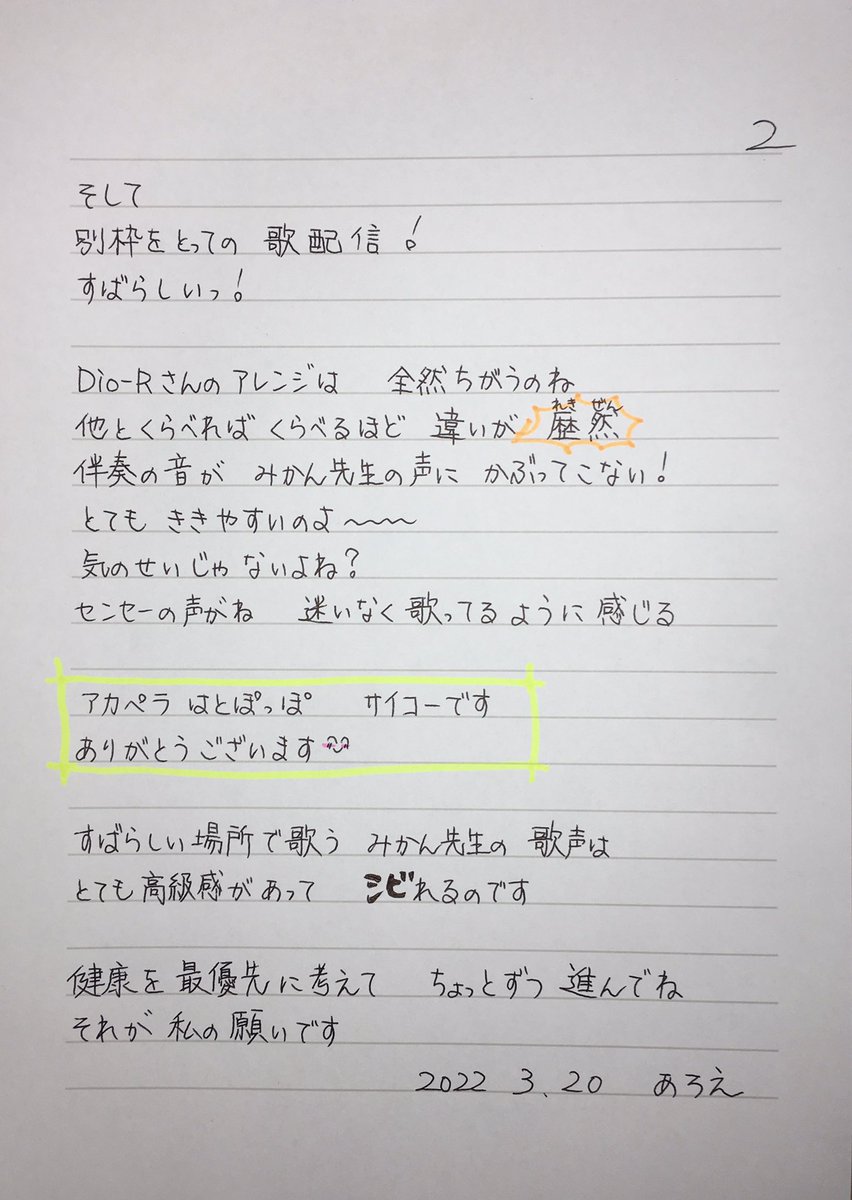 2
そして
別枠をとっての 歌配信!
すばらしいっ!
Dio-Rさんのアレンジは 全然ちがうのね
他とくらべれば くらべるほど 違いが 歴然
れき ぜん
伴奏の音が みかん先生の声に かぶってこない!
とても ききやすいのよ〜〜〜
気のせいじゃ ないよね?
センセーの声がね 迷いなく歌ってる ように 感じる
アカペラ はとぽっぽ サイコーです
ありがとうございます
すばらしい場所で歌う みかん先生の 歌声は
とても高級感があって シビれるのです
健康を最優先に考えて ちょっとずつ 進んでね
それが 私の願いです
2022 3.20 あろえ